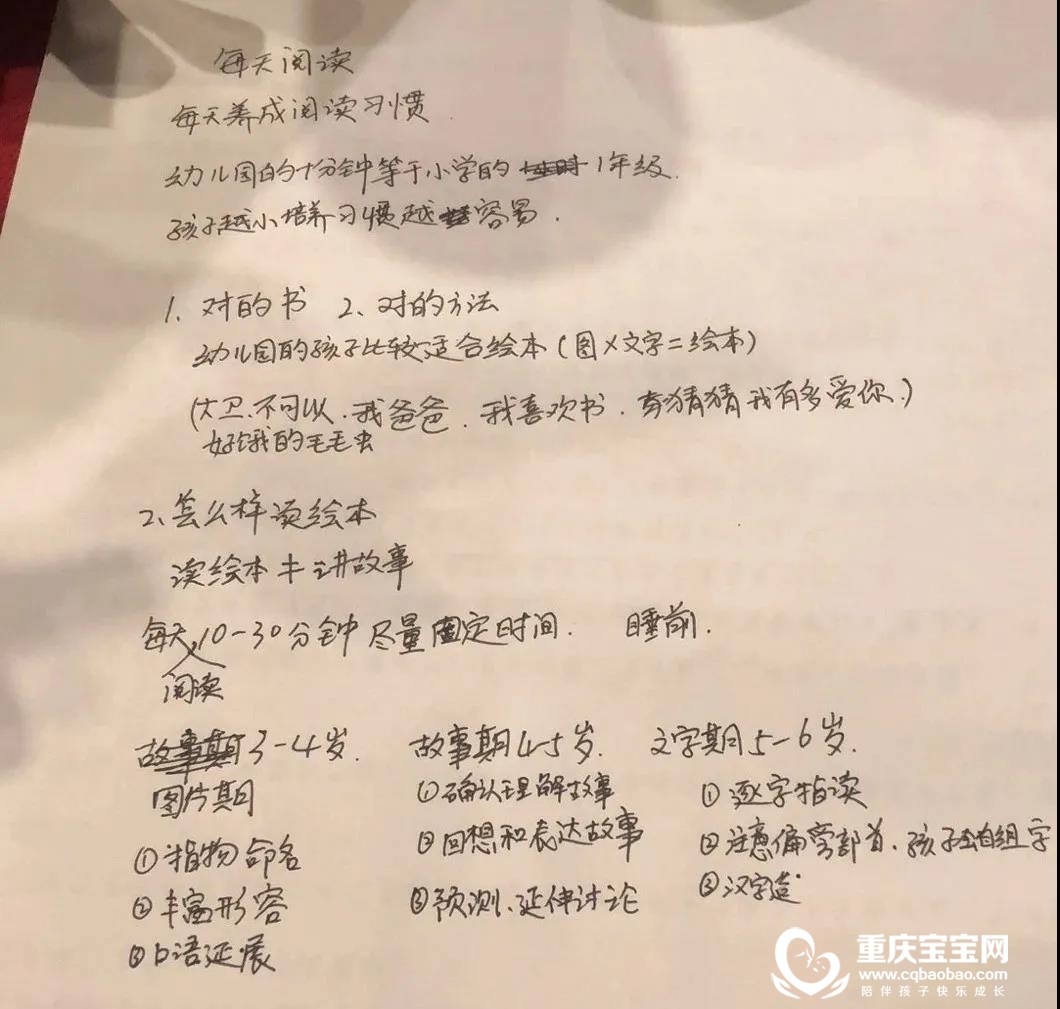 每天阅读
每天养成阅读习惯
幼儿园的十分钟等于小学的 1年级.
孩子越小培养习惯越容易.
1、对的书 2、对的方法
幼儿园的孩子比较适合绘本(图×文字=绘本)
(大卫、不可以、我爸爸、我喜欢书、猜猜我有多爱你.)
好饿的毛毛虫
2、怎么样读绘本
读绘本≠讲故事
每天10-30分钟 尽量固定时间. 睡前.
阅读
故事期3-4岁. 故事期4-5岁. 文字期5-6岁.
图片期 ①确认理解故事 ①逐字指读
①指物命名 ②回想和表达故事 ②注意偏旁部首、孩子组字
②丰富形容 ③预测、延伸讨论 ③汉字
③口语延展
重庆宝宝网
www.cqbaobao.com
陪伴孩子快乐成长